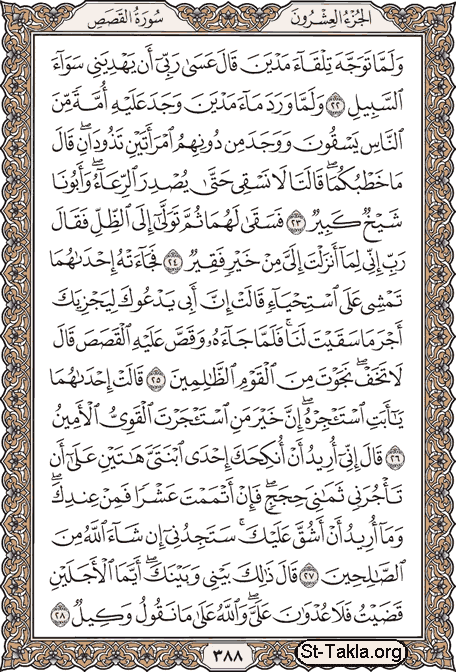 الجزء العشرون
سورة القصص
وَلَمَّا تَوَجَّهَ تِلْقَآءَ مَدْيَنَ قَالَ عَسَىٰ رَبِّىٓ أَن يَهْدِيَنِى سَوَآءَ
ٱلسَّبِيلِ ٢٢ وَلَمَّا وَرَدَ مَآءَ مَدْيَنَ وَجَدَ عَلَيْهِ أُمَّةً مِّنَ
ٱلنَّاسِ يَسْقُونَ وَوَجَدَ مِن دُونِهِمُ ٱمْرَأَتَيْنِ تَذُودَانِۖ قَالَ
مَا خَطْبُكُمَاۖ قَالَتَا لَا نَسْقِى حَتَّىٰ يُصْدِرَ ٱلرِّعَآءُۖ وَأَبُونَا
شَيْخٌ كَبِيرٌ ٢٣ فَسَقَىٰ لَهُمَا ثُمَّ تَوَلَّىٰٓ إِلَى ٱلظِّلِّ فَقَالَ
رَبِّ إِنِّى لِمَآ أَنزَلْتَ إِلَىَّ مِنْ خَيْرٍ فَقِيرٌ ٢٤ فَجَآءَتْهُ إِحْدَىٰهُمَا
تَمْشِى عَلَى ٱسْتِحْيَآءٍ قَالَتْ إِنَّ أَبِى يَدْعُوكَ لِيَجْزِيَكَ
أَجْرَ مَا سَقَيْتَ لَنَاۚ فَلَمَّا جَآءَهُۥ وَقَصَّ عَلَيْهِ ٱلْقَصَصَ قَالَ
لَا تَخَفْۖ نَجَوْتَ مِنَ ٱلْقَوْمِ ٱلظَّٰلِمِينَ ٢٥ قَالَتْ إِحْدَىٰهُمَا
يَٰٓأَبَتِ ٱسْتَـْٔجِرْهُۖ إِنَّ خَيْرَ مَنِ ٱسْتَـْٔجَرْتَ ٱلْقَوِىُّ ٱلْأَمِينُ
٢٦ قَالَ إِنِّىٓ أُرِيدُ أَنْ أُنكِحَكَ إِحْدَى ٱبْنَتَىَّ هَٰتَيْنِ عَلَىٰٓ أَن
تَأْجُرَنِى ثَمَٰنِىَ حِجَجٍۖ فَإِنْ أَتْمَمْتَ عَشْرًا فَمِنْ عِندِكَۖ
وَمَآ أُرِيدُ أَنْ أَشُقَّ عَلَيْكَۚ سَتَجِدُنِىٓ إِن شَآءَ ٱللَّهُ مِنَ
ٱلصَّٰلِحِينَ ٢٧ قَالَ ذَٰلِكَ بَيْنِى وَبَيْنَكَۖ أَيَّمَا ٱلْأَجَلَيْنِ
قَضَيْتُ فَلَا عُدْوَٰنَ عَلَىَّۖ وَٱللَّهُ عَلَىٰ مَا نَقُولُ وَكِيلٌ ٢٨
٣٨٨
St-Takla.org